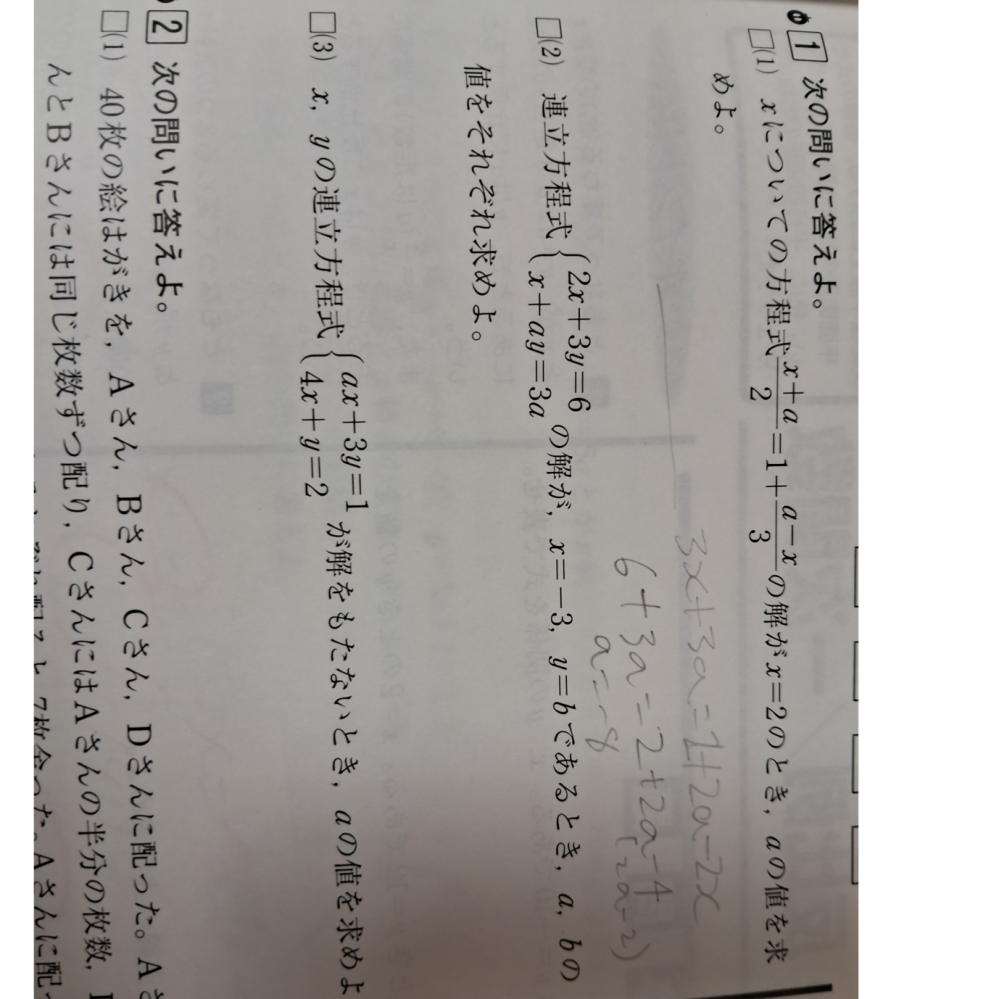 1 次の問いに答えよ。
□(1) xについての方程式 (x+a)/2=1+(a−x)/3 の解がx=2のとき，aの値を求
めよ。
3x+3a=1+2a-2x
6+3a=2+2a-4
(2a-2)
a=-8
□(2) 連立方程式 { 2x+3y=6
x+ay=3a の解が，x=−3，y=bであるとき，a，bの
値をそれぞれ求めよ。
□(3) x，yの連立方程式 { ax+3y=1
4x+y=2 が解をもたないとき，aの値を求めよ
2 次の問いに答えよ。
□(1) 40枚の絵はがきを，Aさん，Bさん，Cさん，Dさんに配った。Aさ
んとBさんには同じ枚数ずつ配り，CさんにはAさんの半分の枚数，
配ると，7枚余った。Aさんに配っ